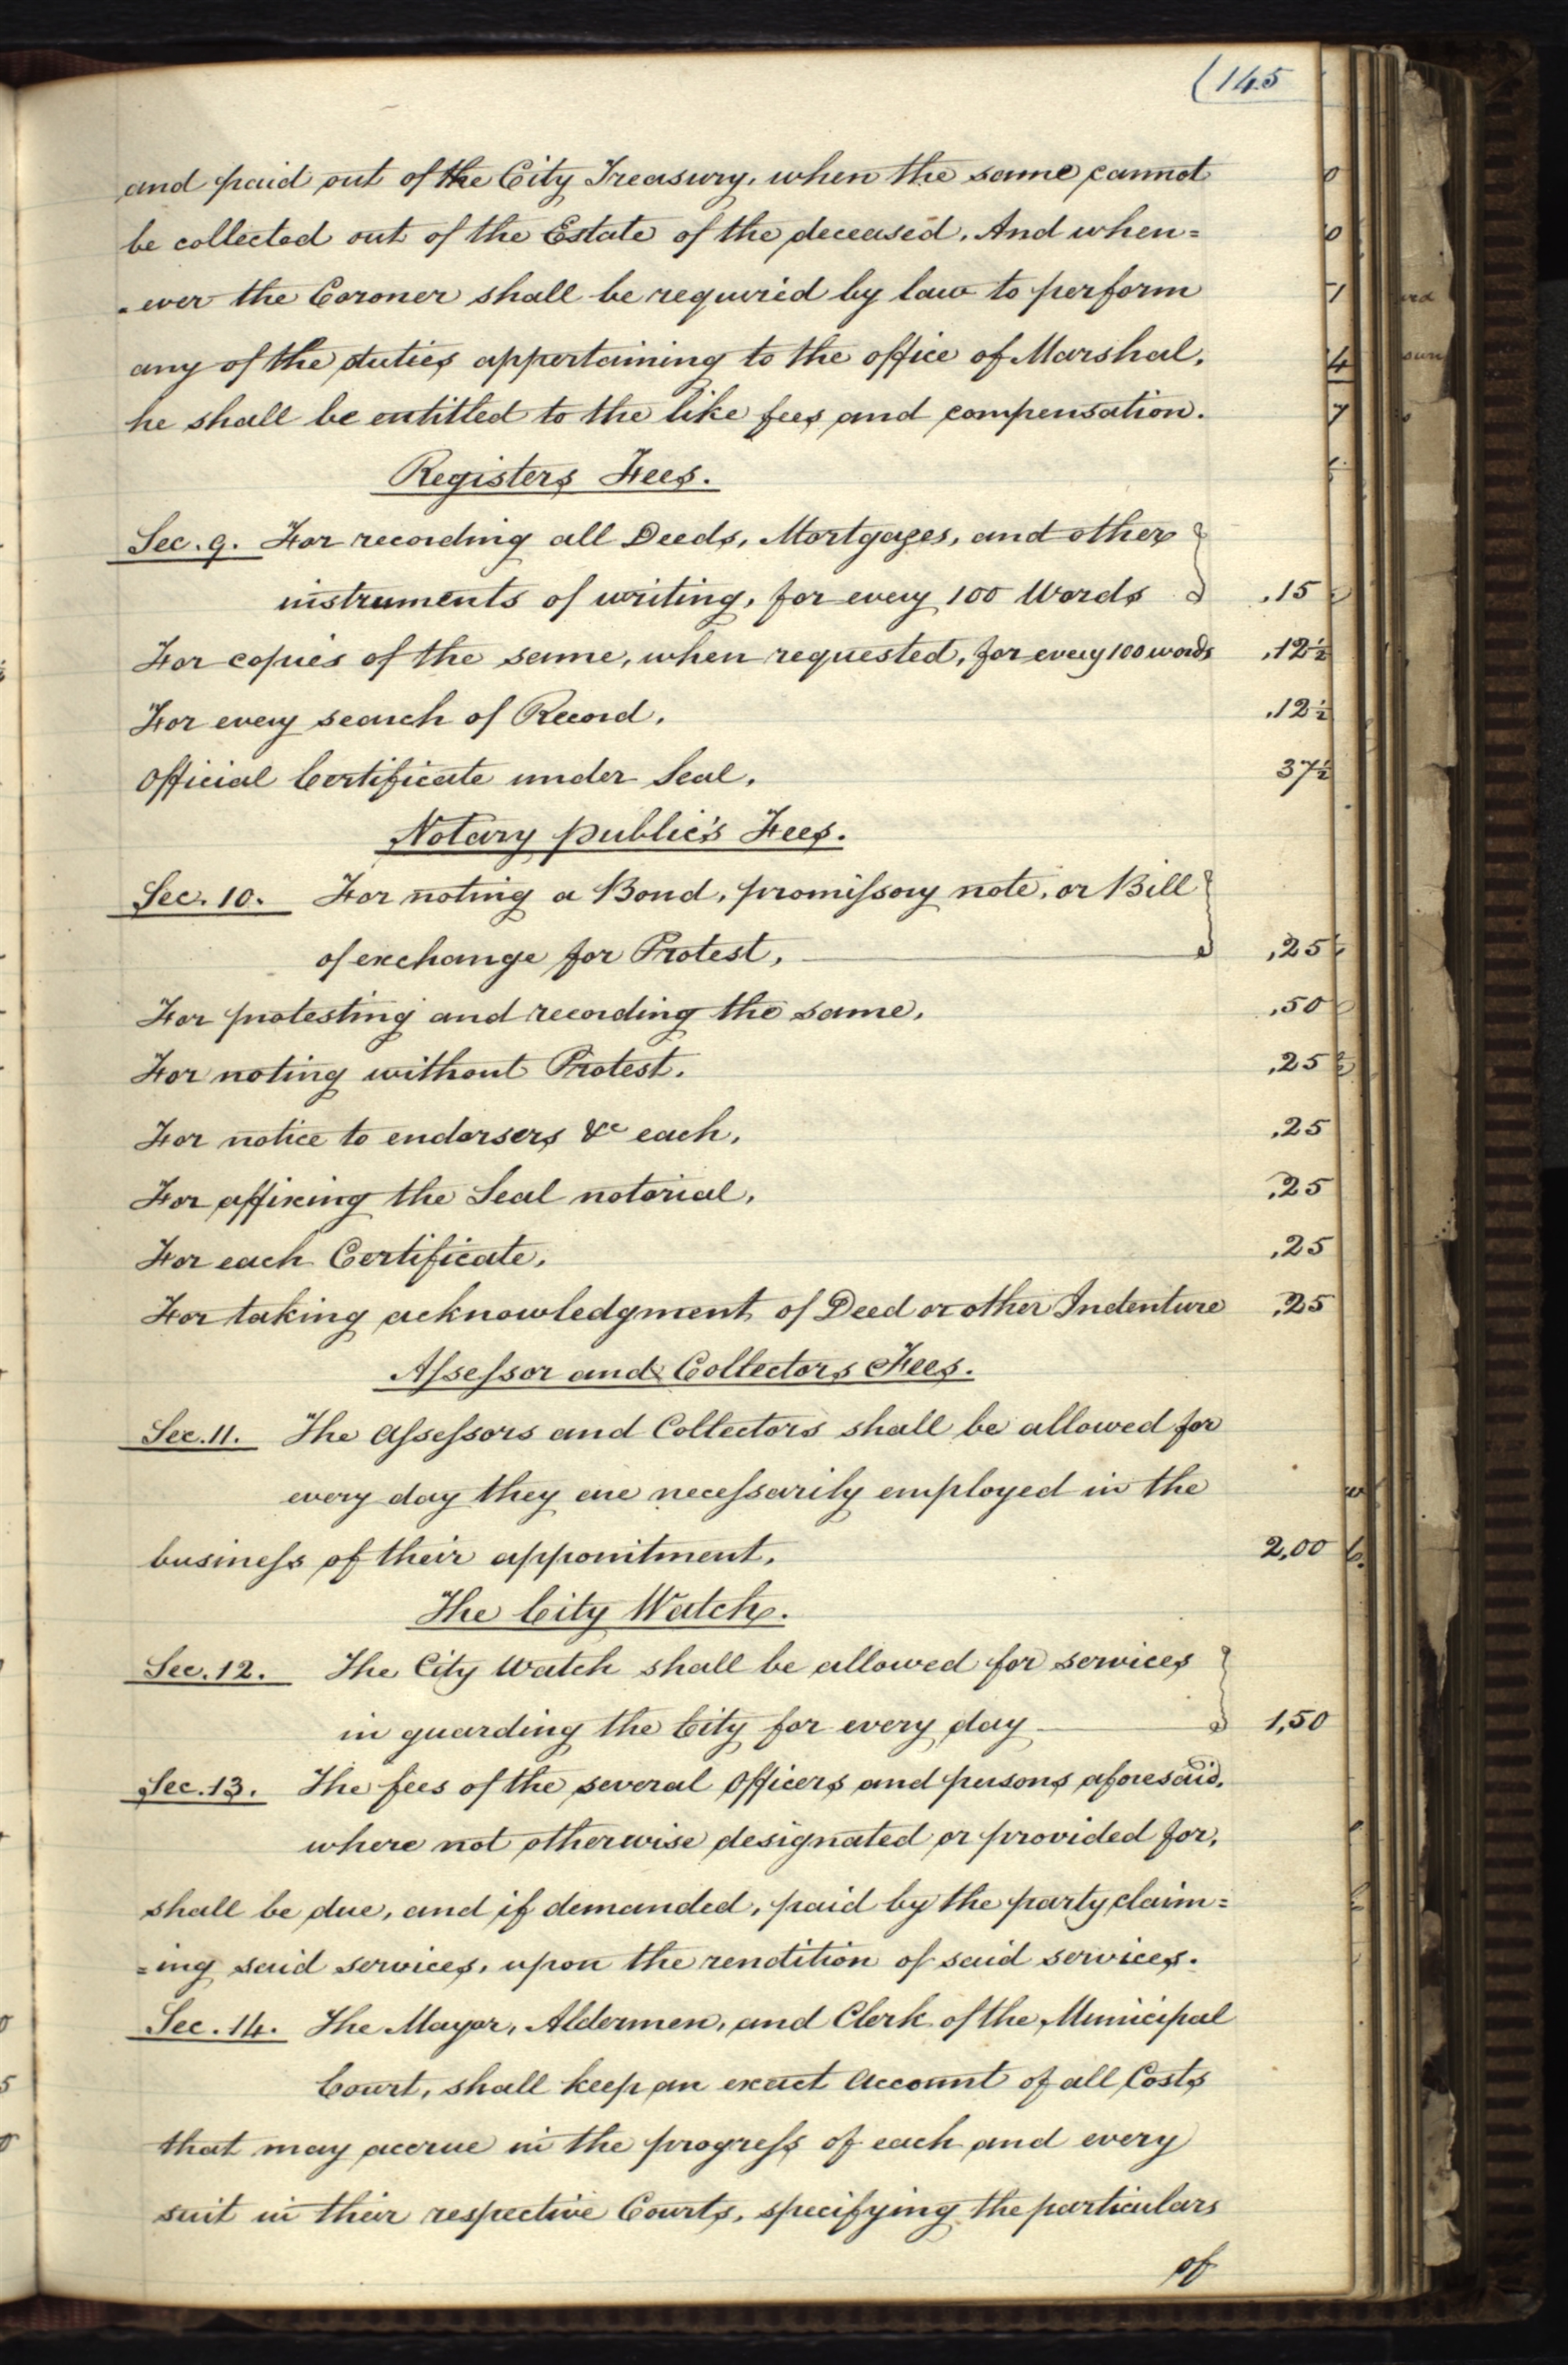 (145
and paid out of the City Treasury, when the same cannot
be collected out of the Estate of the deceased. And when=
=ever the Coroner shall be required by law to perform
any of the duties appertaining to the office of Marshal,
he shall be entitled to the like fees and compensation.
Registers Fees.
Sec. 9. For recording all Deeds, Mortgages, and other
instruments of writing, for every 100 Words ,15
For copies of the same, when requested, for every 100 words ,12½
For every search of Record, ,12½
Official Certificate under Seal, 37½
Notary public's Fees.
Sec. 10. For noting a Bond, promissory note, or Bill
of exchange for Protest, ,25
For protesting and recording the same, ,50
For noting without Protest. ,25
For notice to endorsers &c each, ,25
For affixing the Seal notorial, ,25
For each Certificate, ,25
For taking acknowledgment of Deed or other Indenture ,25
Assessor and Collectors Fees.
Sec. 11. The Assessors and Collectors shall be allowed for
every day they are necessarily employed in the
business of their appointment, 2,00
The City Watch.
Sec. 12. The City Watch shall be allowed for services
in guarding the City for every day 1,50
Sec. 13. The fees of the several Officers and persons aforesaid,
where not otherwise designated or provided for,
shall be due, and if demanded, paid by the party claim=
=ing said services, upon the rendition of said services.
Sec. 14. The Mayor, Aldermen, and Clerk of the Municipal
Court, shall keep an exact account of all Costs
that may accrue in the progress of each and every
suit in their respective Courts, specifying the particulars
of